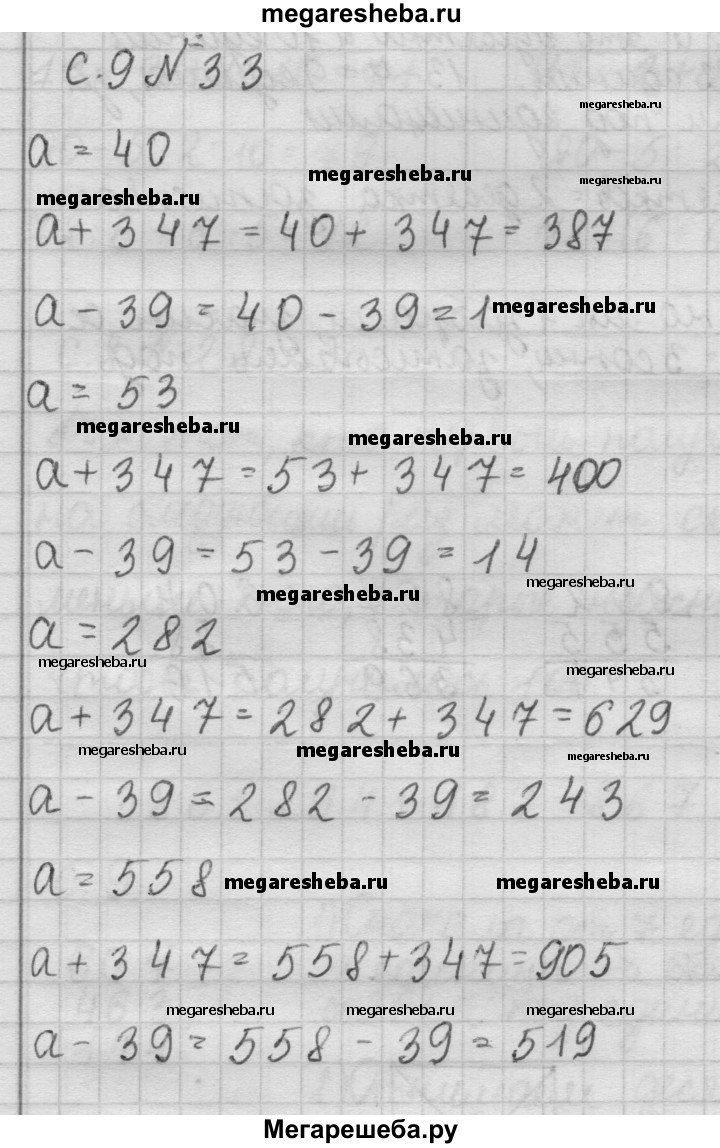 megaresheba.ru
с.9 № 33
megaresheba.ru
a = 40
megaresheba.ru
megaresheba.ru
a + 347 = 40 + 347 = 387
a - 39 = 40 - 39 = 1
megaresheba.ru
a = 53
megaresheba.ru
megaresheba.ru
a + 347 = 53 + 347 = 400
a - 39 = 53 - 39 = 14
megaresheba.ru
megaresheba.ru
a = 282
megaresheba.ru
megaresheba.ru
a + 347 = 282 + 347 = 629
megaresheba.ru
megaresheba.ru
megaresheba.ru
a - 39 = 282 - 39 = 243
a = 558
megaresheba.ru
megaresheba.ru
a + 347 = 558 + 347 = 905
megaresheba.ru
megaresheba.ru
megaresheba.ru
a - 39 = 558 - 39 = 519
Мегарешеба.ру